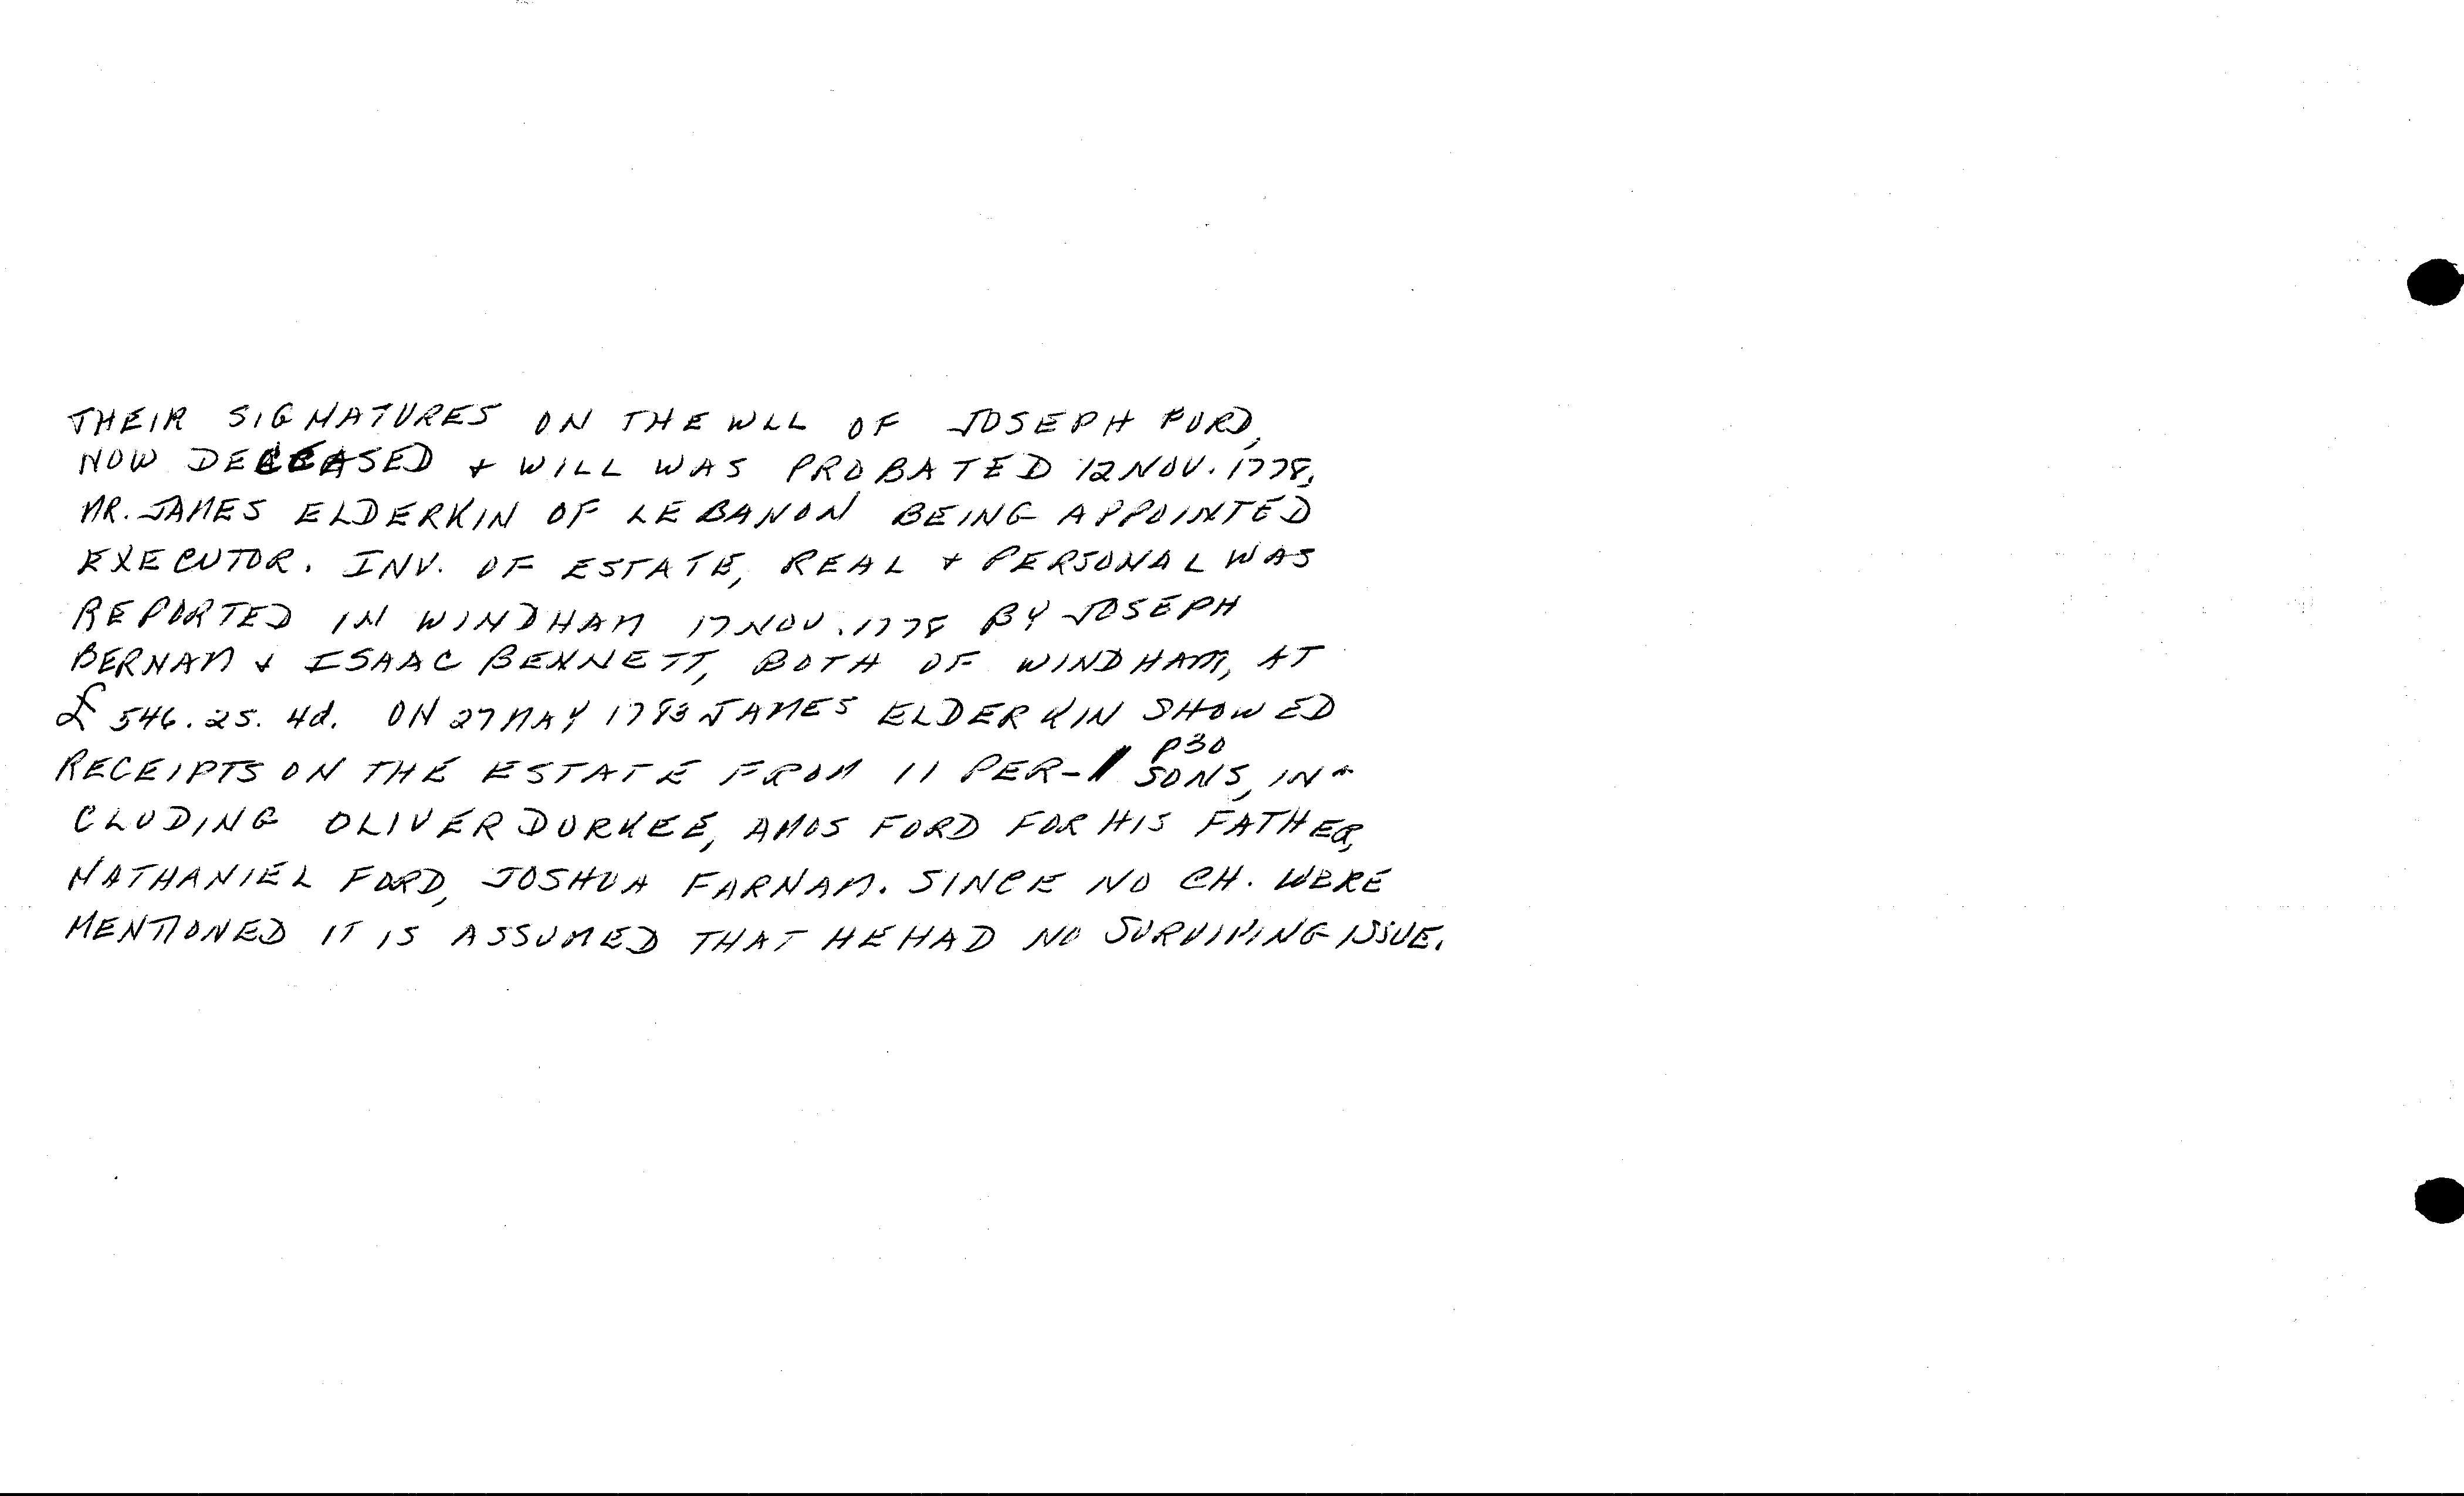 THEIR SIGNATURES ON THE WLL OF JOSEPH FORD,
NOW DECEASED + WILL WAS PROBATED 12 NOV. 1778,
MR. JAMES ELDERKIN OF LEBANON BEING APPOINTED
EXECUTOR. INV. OF ESTATE, REAL + PERSONAL WAS
REPORTED IN WINDHAM 17 NOV. 1778 BY JOSEPH
BERNAM + ISAAC BENNETT, BOTH OF WINDHAM, AT
£ 546. 2S. 4d. ON 27 MAY 1783 JAMES ELDERKIN SHOWED
P30
RECEIPTS ON THE ESTATE FROM 11 PER- SONS, IN-
CLUDING OLIVER DURKEE, AMOS FORD FOR HIS FATHER,
NATHANIEL FORD, JOSHUA FARNAM. SINCE NO CH. WERE
MENTIONED IT IS ASSUMED THAT HE HAD NO SURVIVING ISSUE.